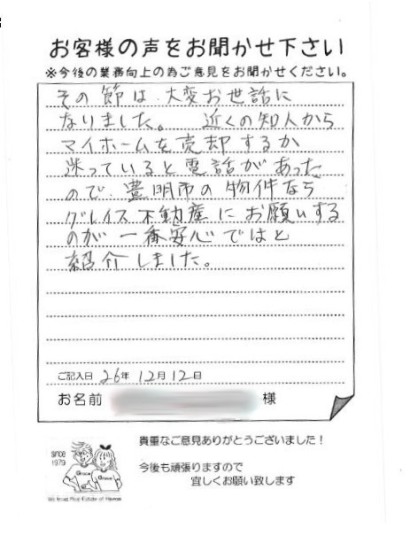 お客様の声をお聞かせ下さい
※今後の業務向上の為ご意見をお聞かせください。
その節は大変お世話に
なりました。 近くの知人から
マイホームを売却するか
迷っていると電話があった
ので、豊明市の物件なら
グレイス不動産にお願いする
のが一番安心ではと
紹介しました。
ご記入日 26年 12月 12日
お名前 様
貴重なご意見ありがとうございました!
SINCE
1979
今後も頑張りますので
宜しくお願い致します